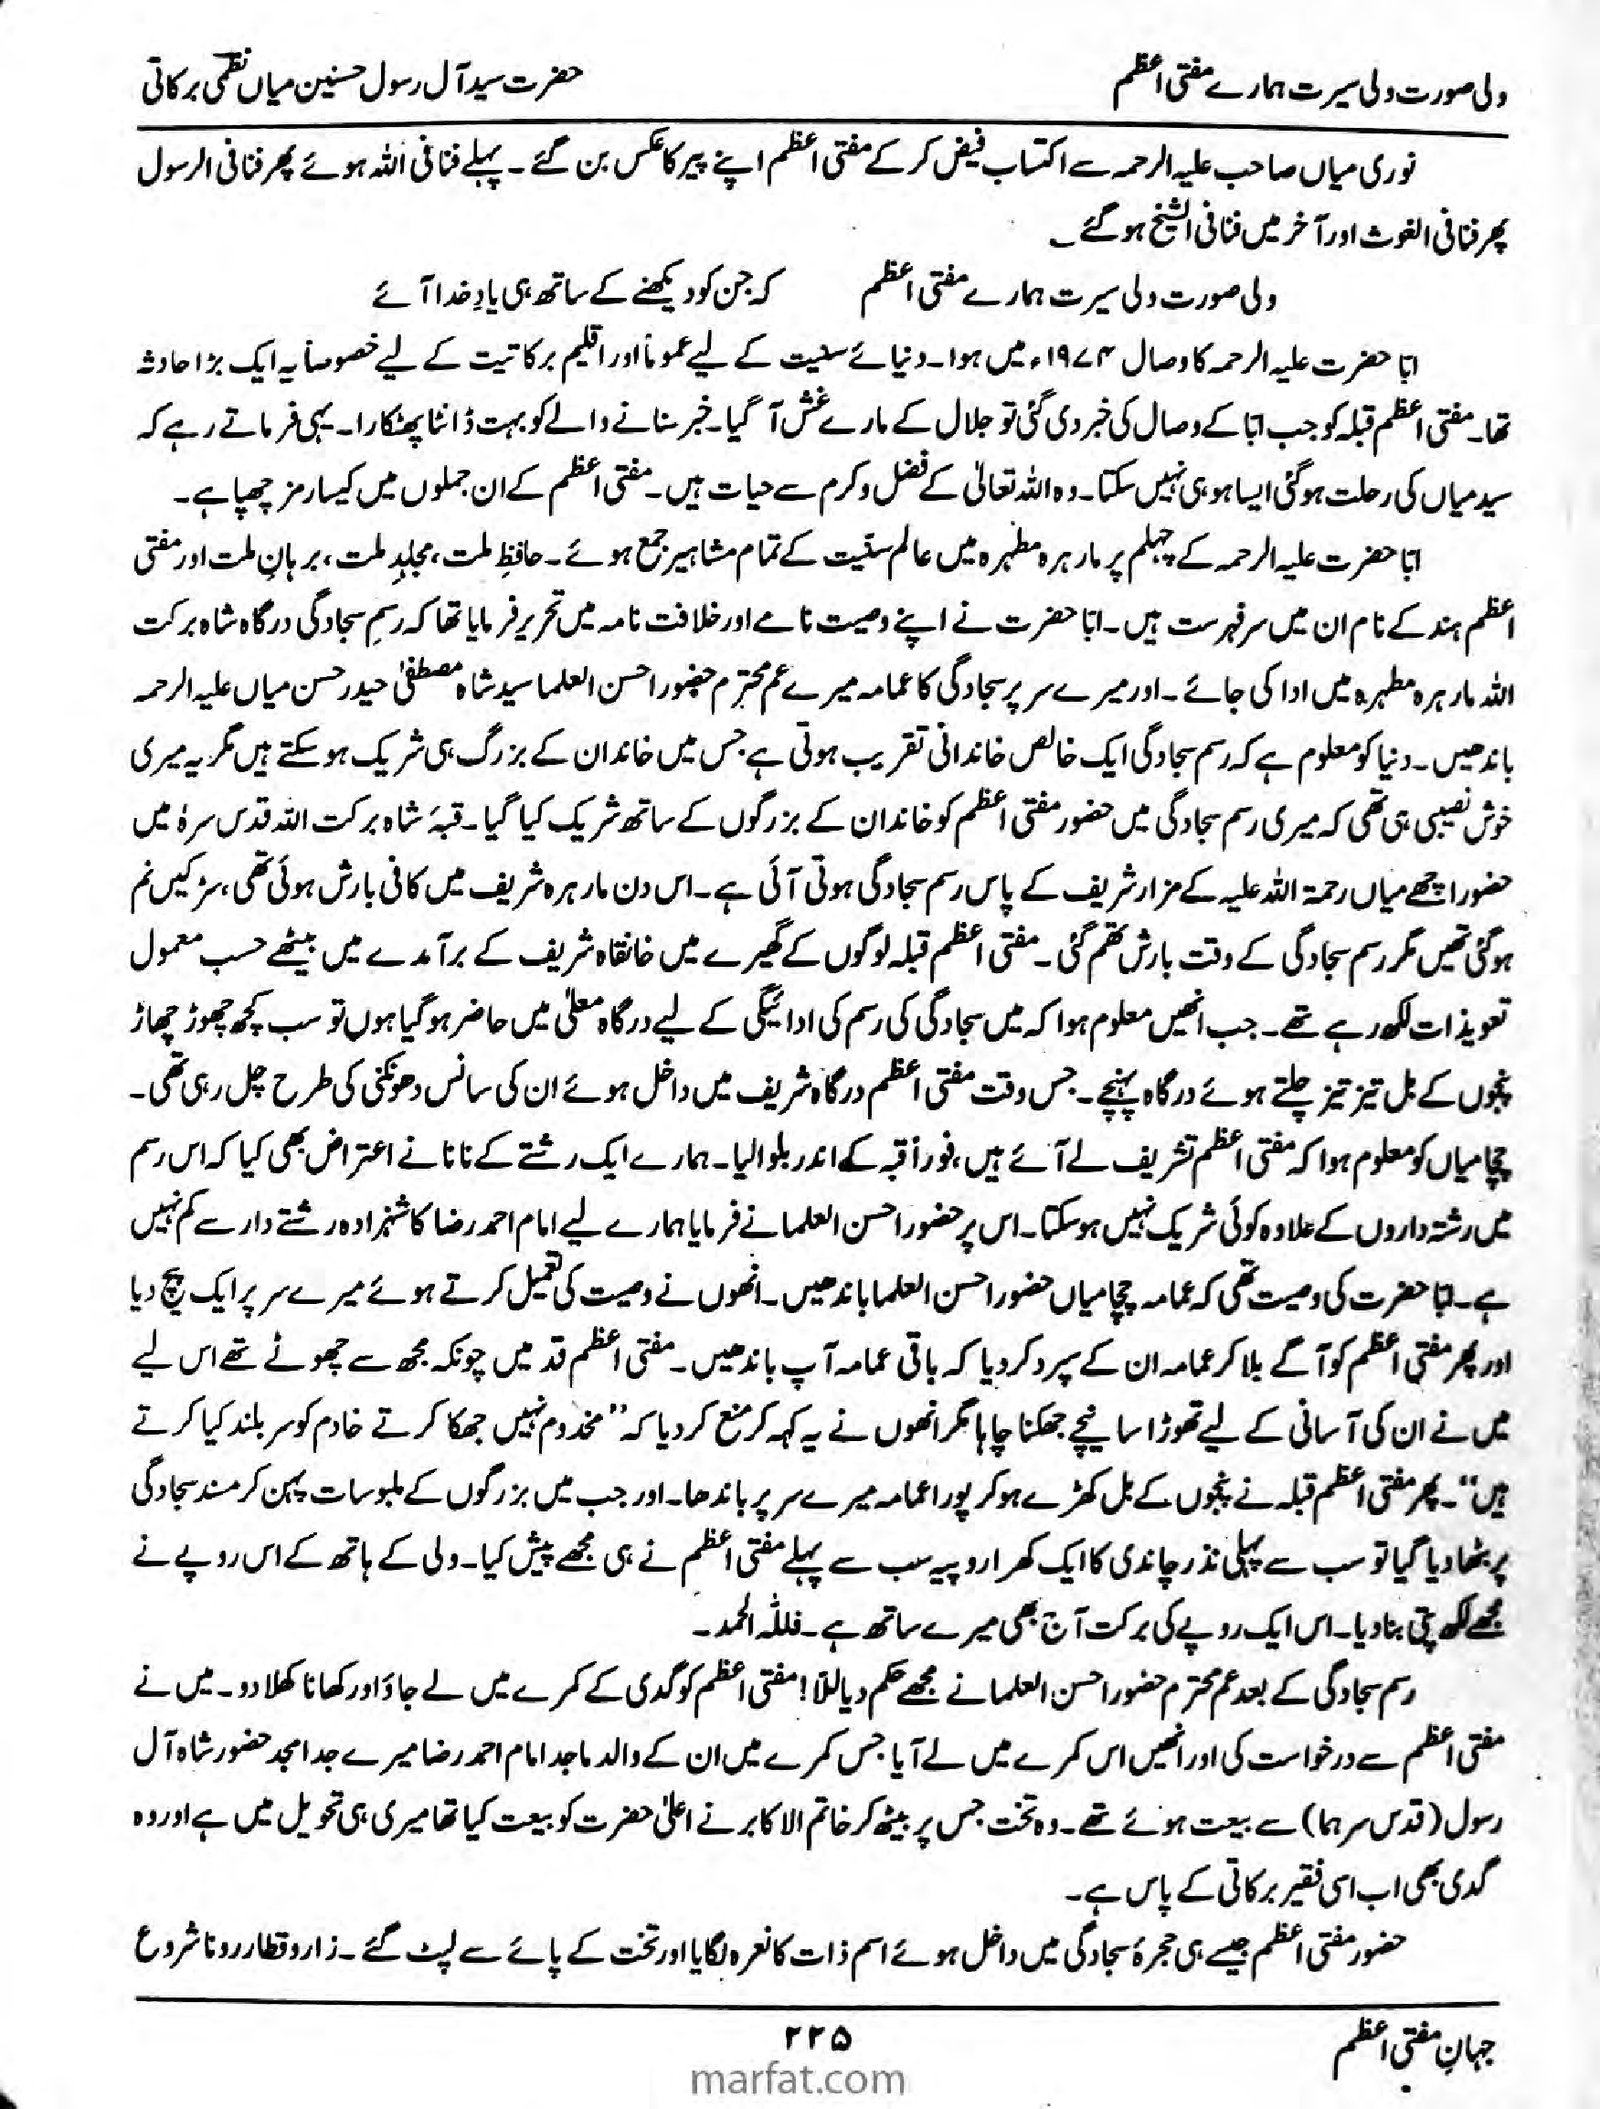 ولی صورت ولی سیرت ہمارے مفتی اعظم
حضرت سید آل رسول حسنین میاں نظمی برکاتی
نوری میاں صاحب علیہ الرحمہ سے اکتساب فیض کر کے مفتی اعظم اپنے پیر کا عکس بن گئے۔ پہلے فنا فی اللہ ہوئے پھر فنا فی الرسول
پھر فنا فی الغوث اور آخر میں فنا فی الشیخ ہو گئے۔
ولی صورت ولی سیرت ہمارے مفتی اعظم کہ جن کو دیکھنے کے ساتھ ہی یادِ خدا آئے
ابّا حضرت علیہ الرحمہ کا وصال ۱۹۷۴ء میں ہوا۔ دنیائے سنیت کے لیے عموماً اور اقلیم برکاتیت کے لیے خصوصاً یہ ایک بڑا حادثہ
تھا۔ مفتی اعظم قبلہ کو جب ابّا کے وصال کی خبر دی گئی تو جلال کے مارے غش آ گیا۔ خبر سنانے والے کو بہت ڈانٹا پھٹکارا۔ یہی فرماتے رہے کہ
سید میاں کی رحلت ہو گئی ایسا ہو ہی نہیں سکتا۔ وہ اللہ تعالیٰ کے فضل و کرم سے حیات ہیں۔ مفتی اعظم کے ان جملوں میں کیسا رمز چھپا ہے۔
ابّا حضرت علیہ الرحمہ کے چہلم پر مارہرہ مطہرہ میں عالم سنّیت کے تمام مشاہیر جمع ہوئے۔ حافظِ ملت، مجاہدِ ملت، برہانِ ملت اور مفتی
اعظم ہند کے نام ان میں سرفہرست ہیں۔ ابّا حضرت نے اپنے وصیت نامے اور خلافت نامہ میں تحریر فرمایا تھا کہ رسمِ سجادگی درگاہ شاہ برکت
اللہ مارہرہ مطہرہ میں ادا کی جائے۔ اور میرے سر پر سجادگی کا عمامہ میرے عم محترم حضور احسن العلما سید شاہ مصطفیٰ حیدر حسن میاں علیہ الرحمہ
باندھیں۔ دنیا کو معلوم ہے کہ رسم سجادگی ایک خالص خاندانی تقریب ہوتی ہے جس میں خاندان کے بزرگ ہی شریک ہو سکتے ہیں مگر یہ میری
خوش نصیبی ہی تھی کہ میری رسم سجادگی میں حضور مفتی اعظم کو خاندان کے بزرگوں کے ساتھ شریک کیا گیا۔ قبۂ شاہ برکت اللہ قدس سرہٗ میں
حضور اچھے میاں رحمۃ اللہ علیہ کے مزار شریف کے پاس رسم سجادگی ہوتی آئی ہے۔ اس دن مارہرہ شریف میں کافی بارش ہوئی تھی، سڑکیں نم
ہو گئی تھیں مگر رسم سجادگی کے وقت بارش تھم گئی۔ مفتی اعظم قبلہ لوگوں کے گھیرے میں خانقاہ شریف کے برآمدے میں بیٹھے حسب معمول
تعویذات لکھ رہے تھے۔ جب انھیں معلوم ہوا کہ میں سجادگی کی رسم کی ادائیگی کے لیے درگاہ معلیٰ میں حاضر ہو گیا ہوں تو سب کچھ چھوڑ چھاڑ
پنجوں کے بل تیز تیز چلتے ہوئے درگاہ پہنچے۔ جس وقت مفتی اعظم درگاہ شریف میں داخل ہوئے ان کی سانس دھونکنی کی طرح چل رہی تھی۔
چچا میاں کو معلوم ہوا کہ مفتی اعظم تشریف لے آئے ہیں، فوراً قبہ کے اندر بلوا لیا۔ ہمارے ایک رشتے کے نانا نے اعتراض بھی کیا کہ اس رسم
میں رشتہ داروں کے علاوہ کوئی شریک نہیں ہو سکتا۔ اس پر حضور احسن العلما نے فرمایا ہمارے لیے امام احمد رضا کا شہزادہ رشتے دار سے کم نہیں
ہے۔ ابّا حضرت کی وصیت تھی کہ عمامہ چچا میاں حضور احسن العلما باندھیں۔ انھوں نے وصیت کی تعمیل کرتے ہوئے میرے سر پر ایک پیچ دیا
اور پھر مفتی اعظم کو آگے بلا کر عمامہ ان کے سپرد کر دیا کہ باقی عمامہ آپ باندھیں۔ مفتی اعظم قد میں چونکہ مجھ سے چھوٹے تھے اس لیے
میں نے ان کی آسانی کے لیے تھوڑا سا نیچے جھکنا چاہا مگر انھوں نے یہ کہہ کر منع کر دیا کہ ”مخدوم نہیں جھکا کرتے خادم کو سر بلند کیا کرتے
ہیں“۔ پھر مفتی اعظم قبلہ نے پنجوں کے بل کھڑے ہو کر پورا عمامہ میرے سر پر باندھا۔ اور جب میں بزرگوں کے ملبوسات پہن کر مسند سجادگی
پر بٹھا دیا گیا تو سب سے پہلی نذر چاندی کا ایک کھرا روپیہ سب سے پہلے مفتی اعظم نے ہی مجھے پیش کیا۔ ولی کے ہاتھ کے اس روپے نے
مجھے لکھ پتی بنا دیا۔ اس ایک روپے کی برکت آج بھی میرے ساتھ ہے۔ فللّٰہ الحمد۔
رسم سجادگی کے بعد عم محترم حضور احسن العلما نے مجھے حکم دیا للّا! مفتی اعظم کو گدی کے کمرے میں لے جاؤ اور کھانا کھلا دو۔ میں نے
مفتی اعظم سے درخواست کی اور انھیں اس کمرے میں لے آیا جس کمرے میں ان کے والد ماجد امام احمد رضا میرے جد امجد حضور شاہ آل
رسول (قدس سرہما) سے بیعت ہوئے تھے۔ وہ تخت جس پر بیٹھ کر خاتم الاکابر نے اعلیٰ حضرت کو بیعت کیا تھا میری ہی تحویل میں ہے اور وہ
گدی بھی اب اسی فقیر برکاتی کے پاس ہے۔
حضور مفتی اعظم جیسے ہی حجرۂ سجادگی میں داخل ہوئے اسم ذات کا نعرہ لگایا اور تخت کے پائے سے لپٹ گئے۔ زار و قطار رونا شروع
جہانِ مفتی اعظم
۲۲۵
marfat.com